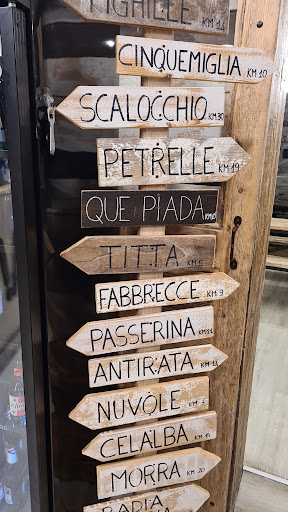 FIGHILLE KM 14
CINQUEMIGLIA KM 10
SCALOCCHIO KM 30
PETRELLE KM 19
QUE PIADA KM 0
TITTA KM 5
FABBRECCE KM 9
PASSERINA KM 11
ANTIRATA KM 14
NUVOLE KM
CELALBA KM
MORRA KM 20
BADIA